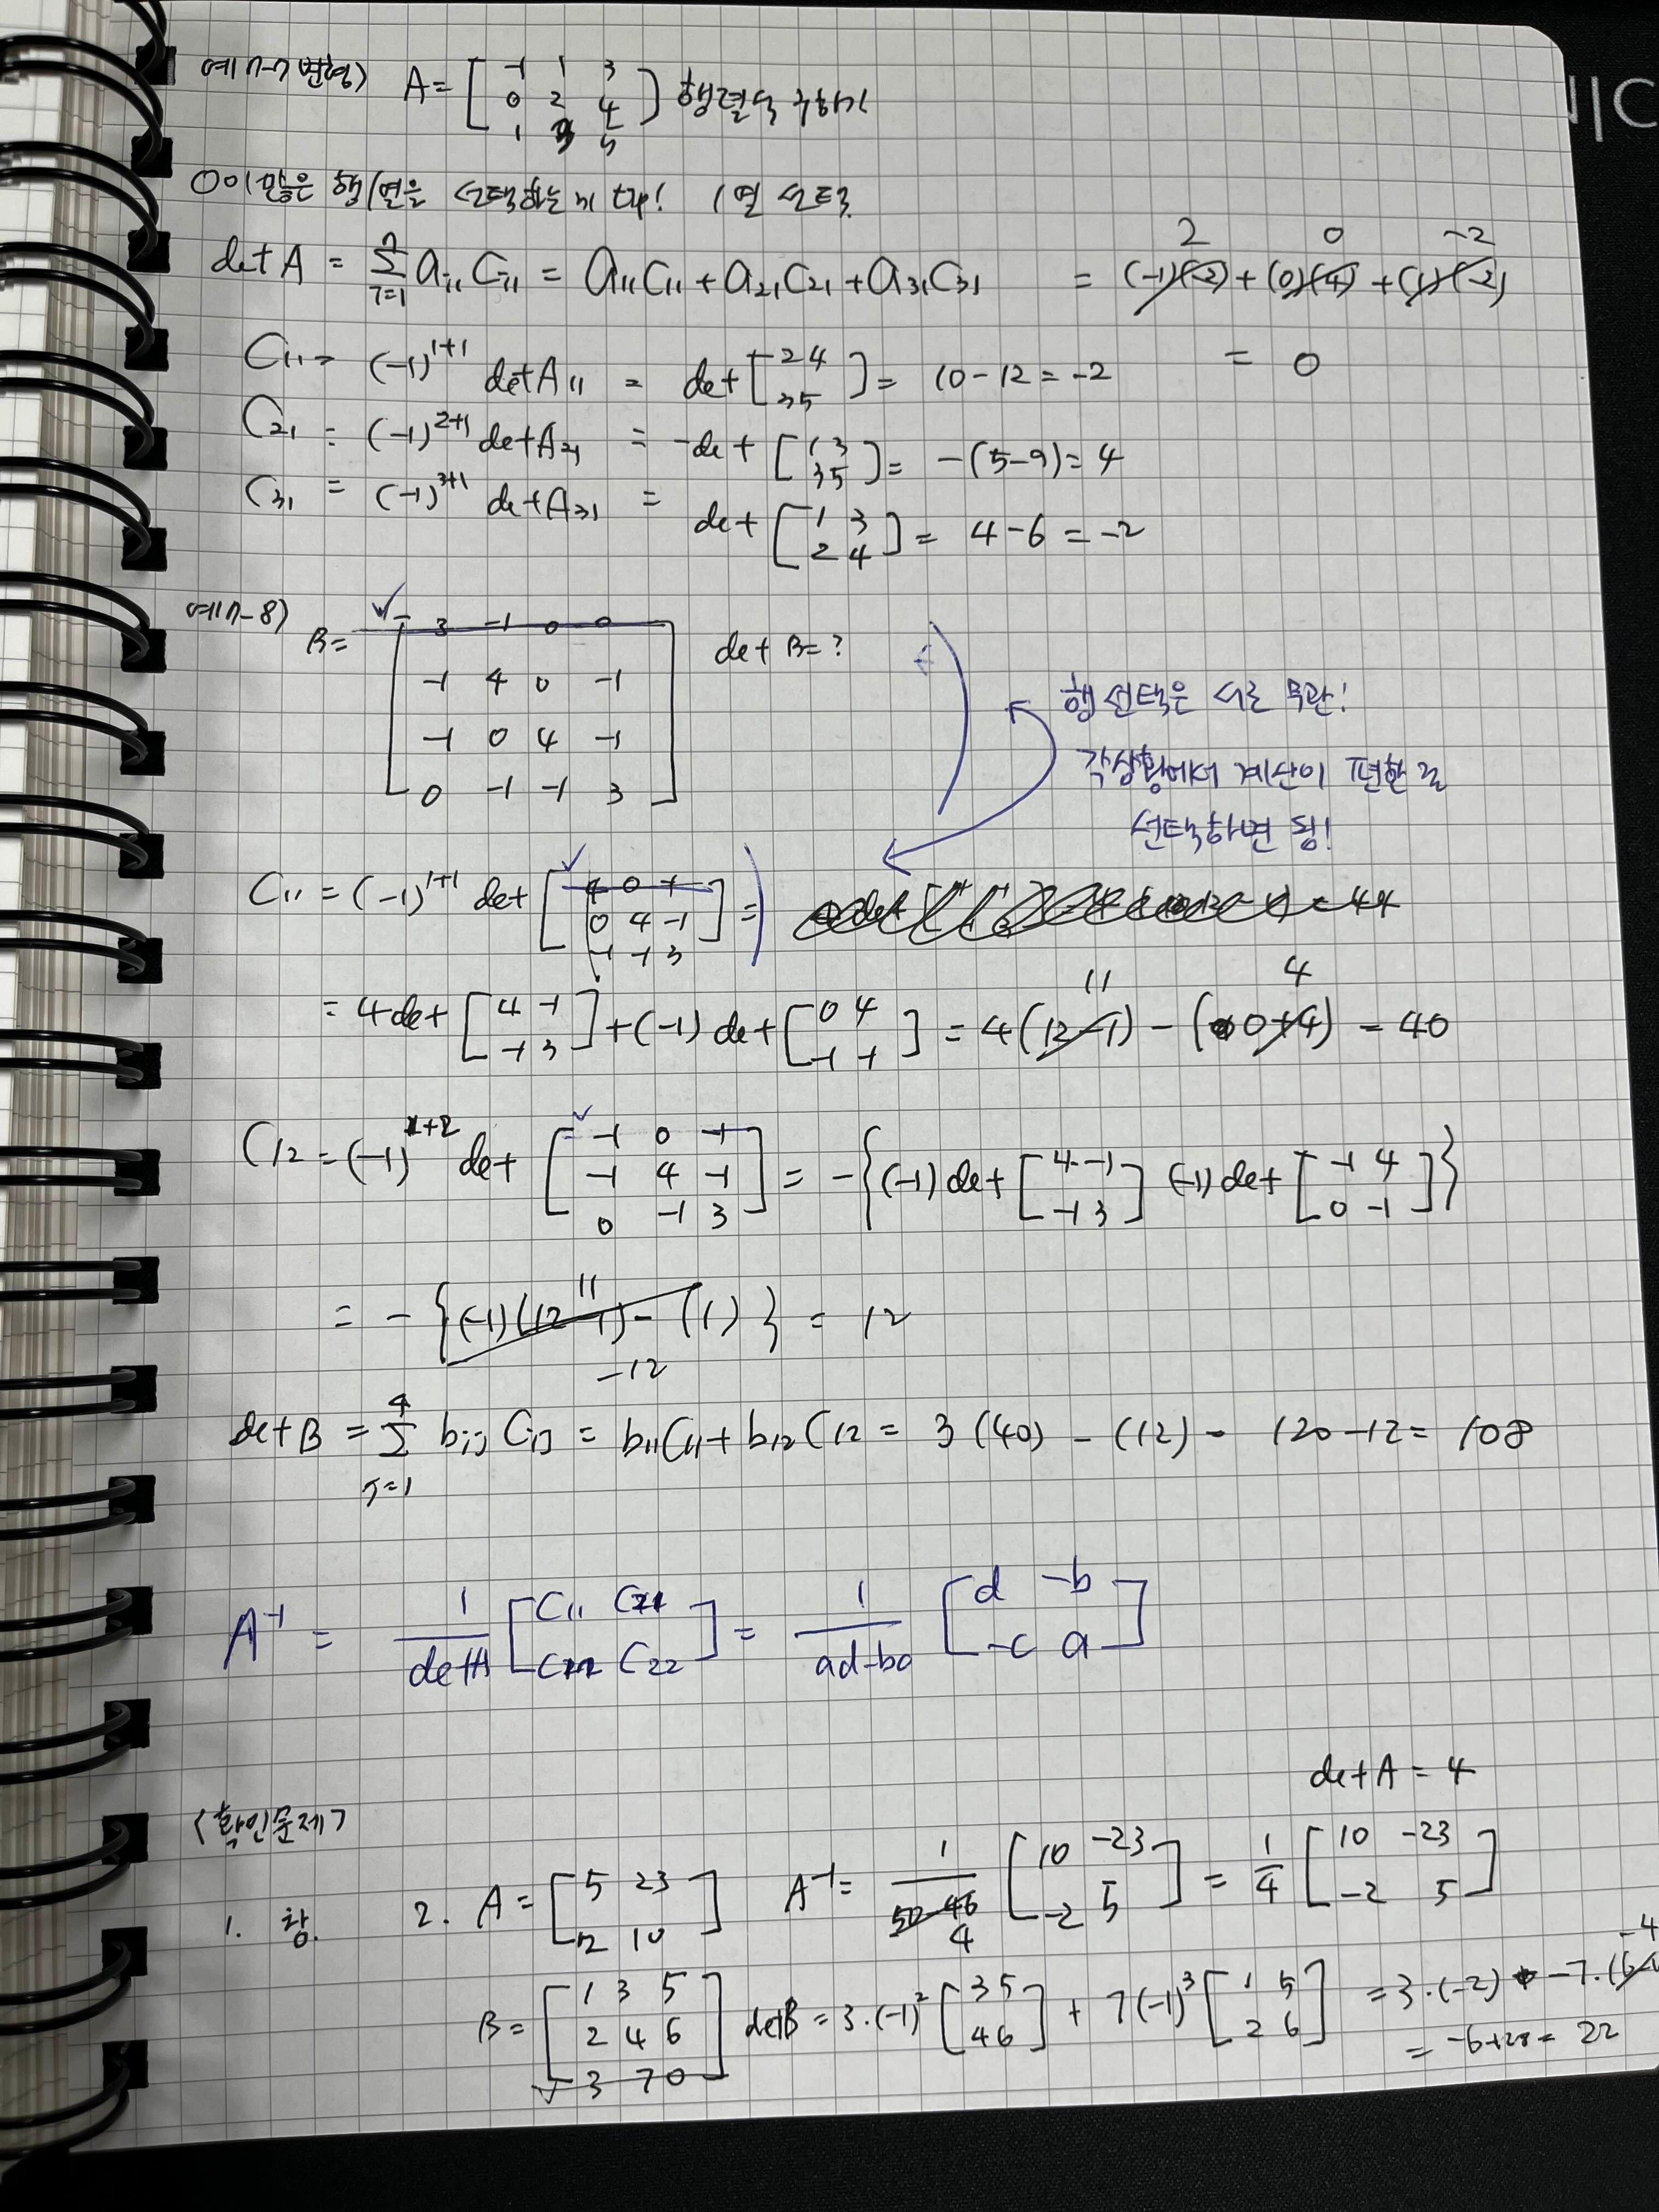 예17-7 변형) A = [ -1 1 3
0 2 4
1 3 5 ] 행렬식 구하기
0이 많은 행/열을 선택하는게 tip! 1열 선택
2 0 -2
det A = Σ ai1 Ci1 = a11C11 + a21C21 + a31C31 = (-1)(-2) + (0)(4) + (1)(-2)
C11 = (-1)^1+1 det A11 = det [ 2 4
3 5 ] = 10 - 12 = -2 = 0
C21 = (-1)^2+1 det A21 = -det [ 1 3
3 5 ] = -(5-9) = 4
C31 = (-1)^3+1 det A31 = det [ 1 3
2 4 ] = 4 - 6 = -2
예17-8) B = [ 3 -1 0 0
-1 4 0 -1
-1 0 4 -1
0 -1 -1 3 ] det B = ?
행 선택은 서로 무관!
각 상황에서 계산이 편한 걸
선택하면 됨!
C11 = (-1)^1+1 det [ 4 0 -1
0 4 -1
-1 -1 3 ] =
= 44
11 4
= 4 det [ 4 -1
-1 3 ] + (-1) det [ 0 4
-1 -1 ] = 4(12-1) - (0+4) = 40
C12 = (-1)^1+2 det [ -1 0 -1
-1 4 -1
0 -1 3 ] = -{(-1) det [ 4 -1
-1 3 ] (-1) det [ -1 4
0 -1 ]}
11
= -{(-1)(12-1) - (1)} = 12
-12
det B = 4 Σ j=1 bij Cij = b11C11 + b12C12 = 3(40) - (12) = 120 - 12 = 108
A^-1 = 1/detA [ C11 C21
C12 C22 ] = 1/ad-bc [ d -b
-c a ]
det A = 4
<확인문제>
1. 참. 2. A = [ 5 23
2 10 ] A^-1 = 1/50-46 4 [ 10 -23
-2 5 ] = 1/4 [ 10 -23
-2 5 ]
B = [ 1 3 5
2 4 6
3 7 0 ] detB = 3·(-1)^2 [ 3 5
4 6 ] + 7(-1)^3 [ 1 5
2 6 ] = 3·(-2) -7·(6-
-4
= -6+28 = 22